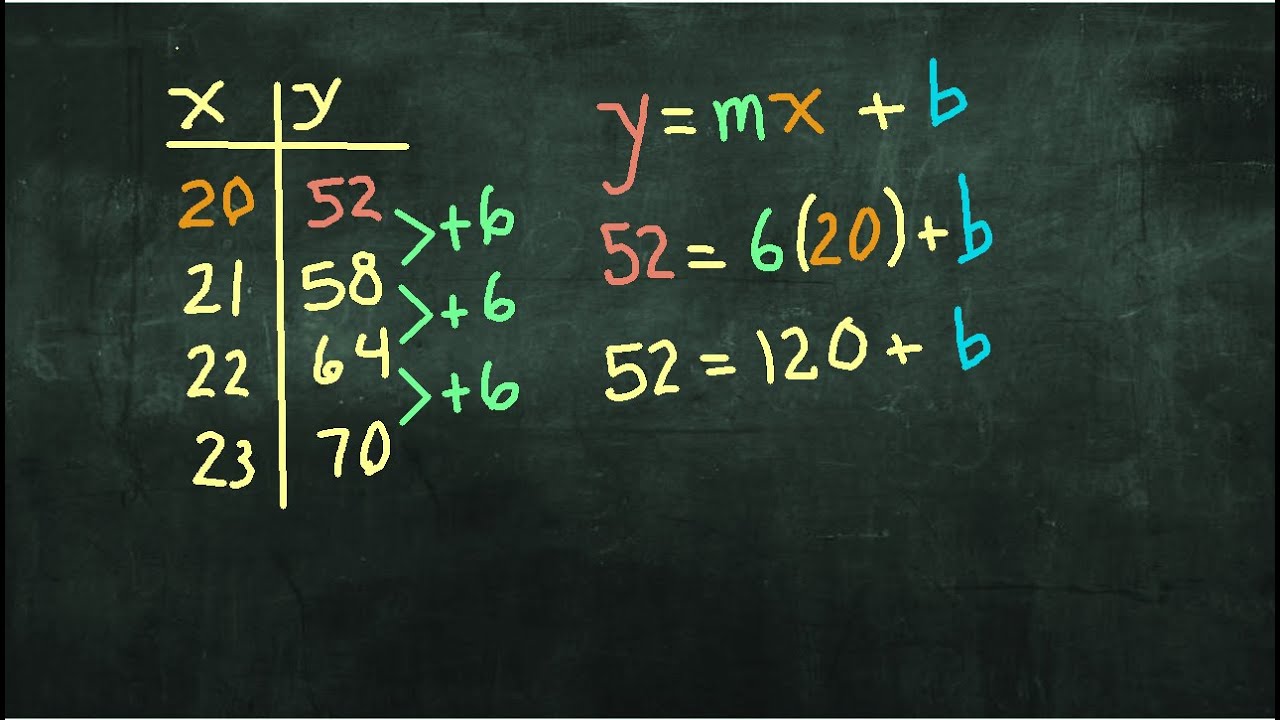 x y
20 52
+6
21 58
+6
22 64
+6
23 70
y = mx + b
52 = 6(20) + b
52 = 120 + b